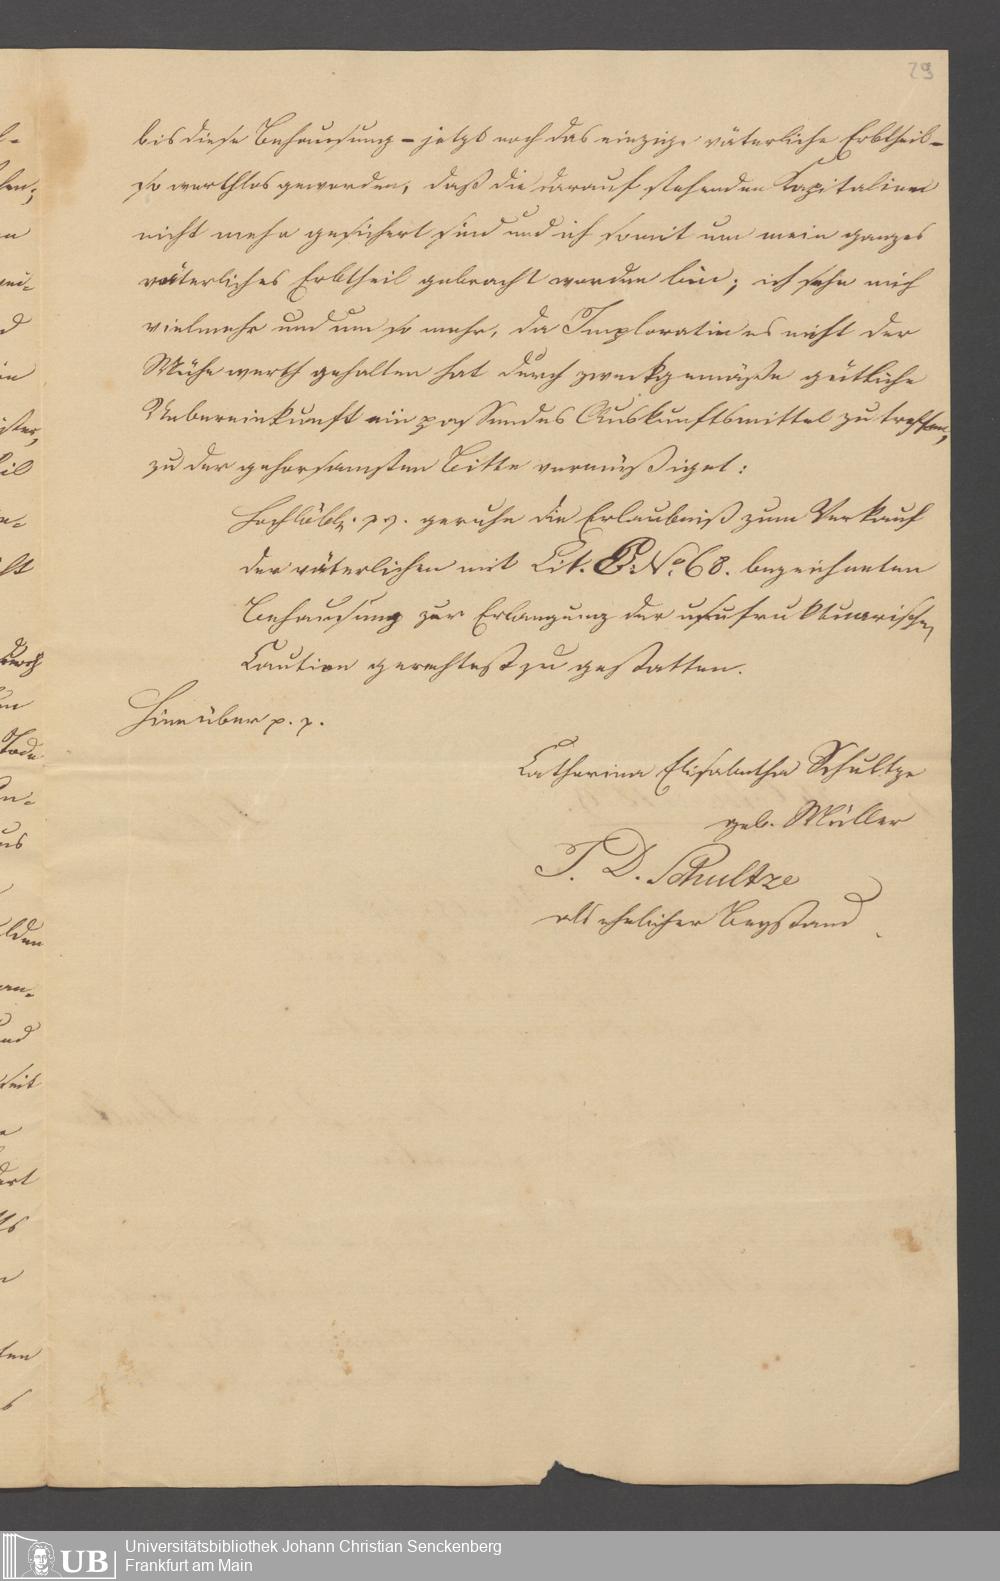 29
bis diese Behausung – jetzt noch das einzige väterliche Erbtheil –
so werthlos geworden, daß die darauf stehenden Kapitalien
nicht mehr gesichert sind und ich somit um mein ganzes
väterliches Erbtheil gebracht worden bin; ich sehe mich
vielmehr und um so mehr, da Imploratin es nicht der
Mühe werth gehalten hat durch zweckgemäße gütliche
Uebereinkunft ein passendes Auskunftsmittel zu treffen,
zu der gehorsamsten Bitte vermüßiget:
Hochlöbl. geruhe die Erlaubniß zum Verkauf
der väterlichen mit Lit. No. 68. bezeichneten
Behausung zur Erlangung der usufructuarischen
Caution gerechtest zu gestatten.
Hierüber p. p.
Catharina Elisabetha Schultze
geb. Müller
J. D. Schultze
als ehelicher Beystand
l-
len;
d
in
ister,
durch
Tode
us
lden
nd
mit
UB
Universitätsbibliothek Johann Christian Senckenberg
Frankfurt am Main